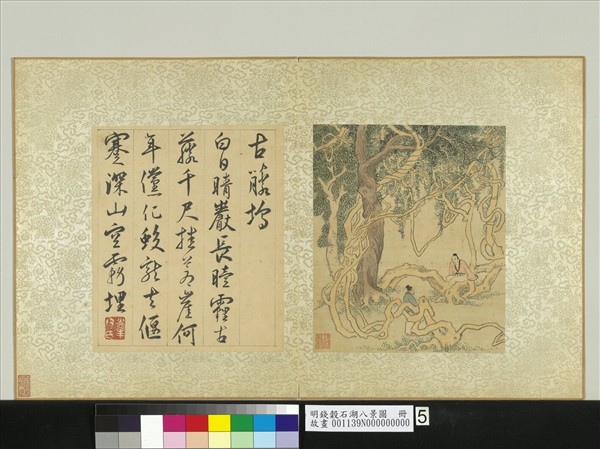 古藤塢
白日晴巖長曀霾古
藤千尺挂蒼崖何
年儻化蛟龍去偃
蹇深山空霧埋
明錢穀石湖八景圖 冊
故畫 001139N000000000
5